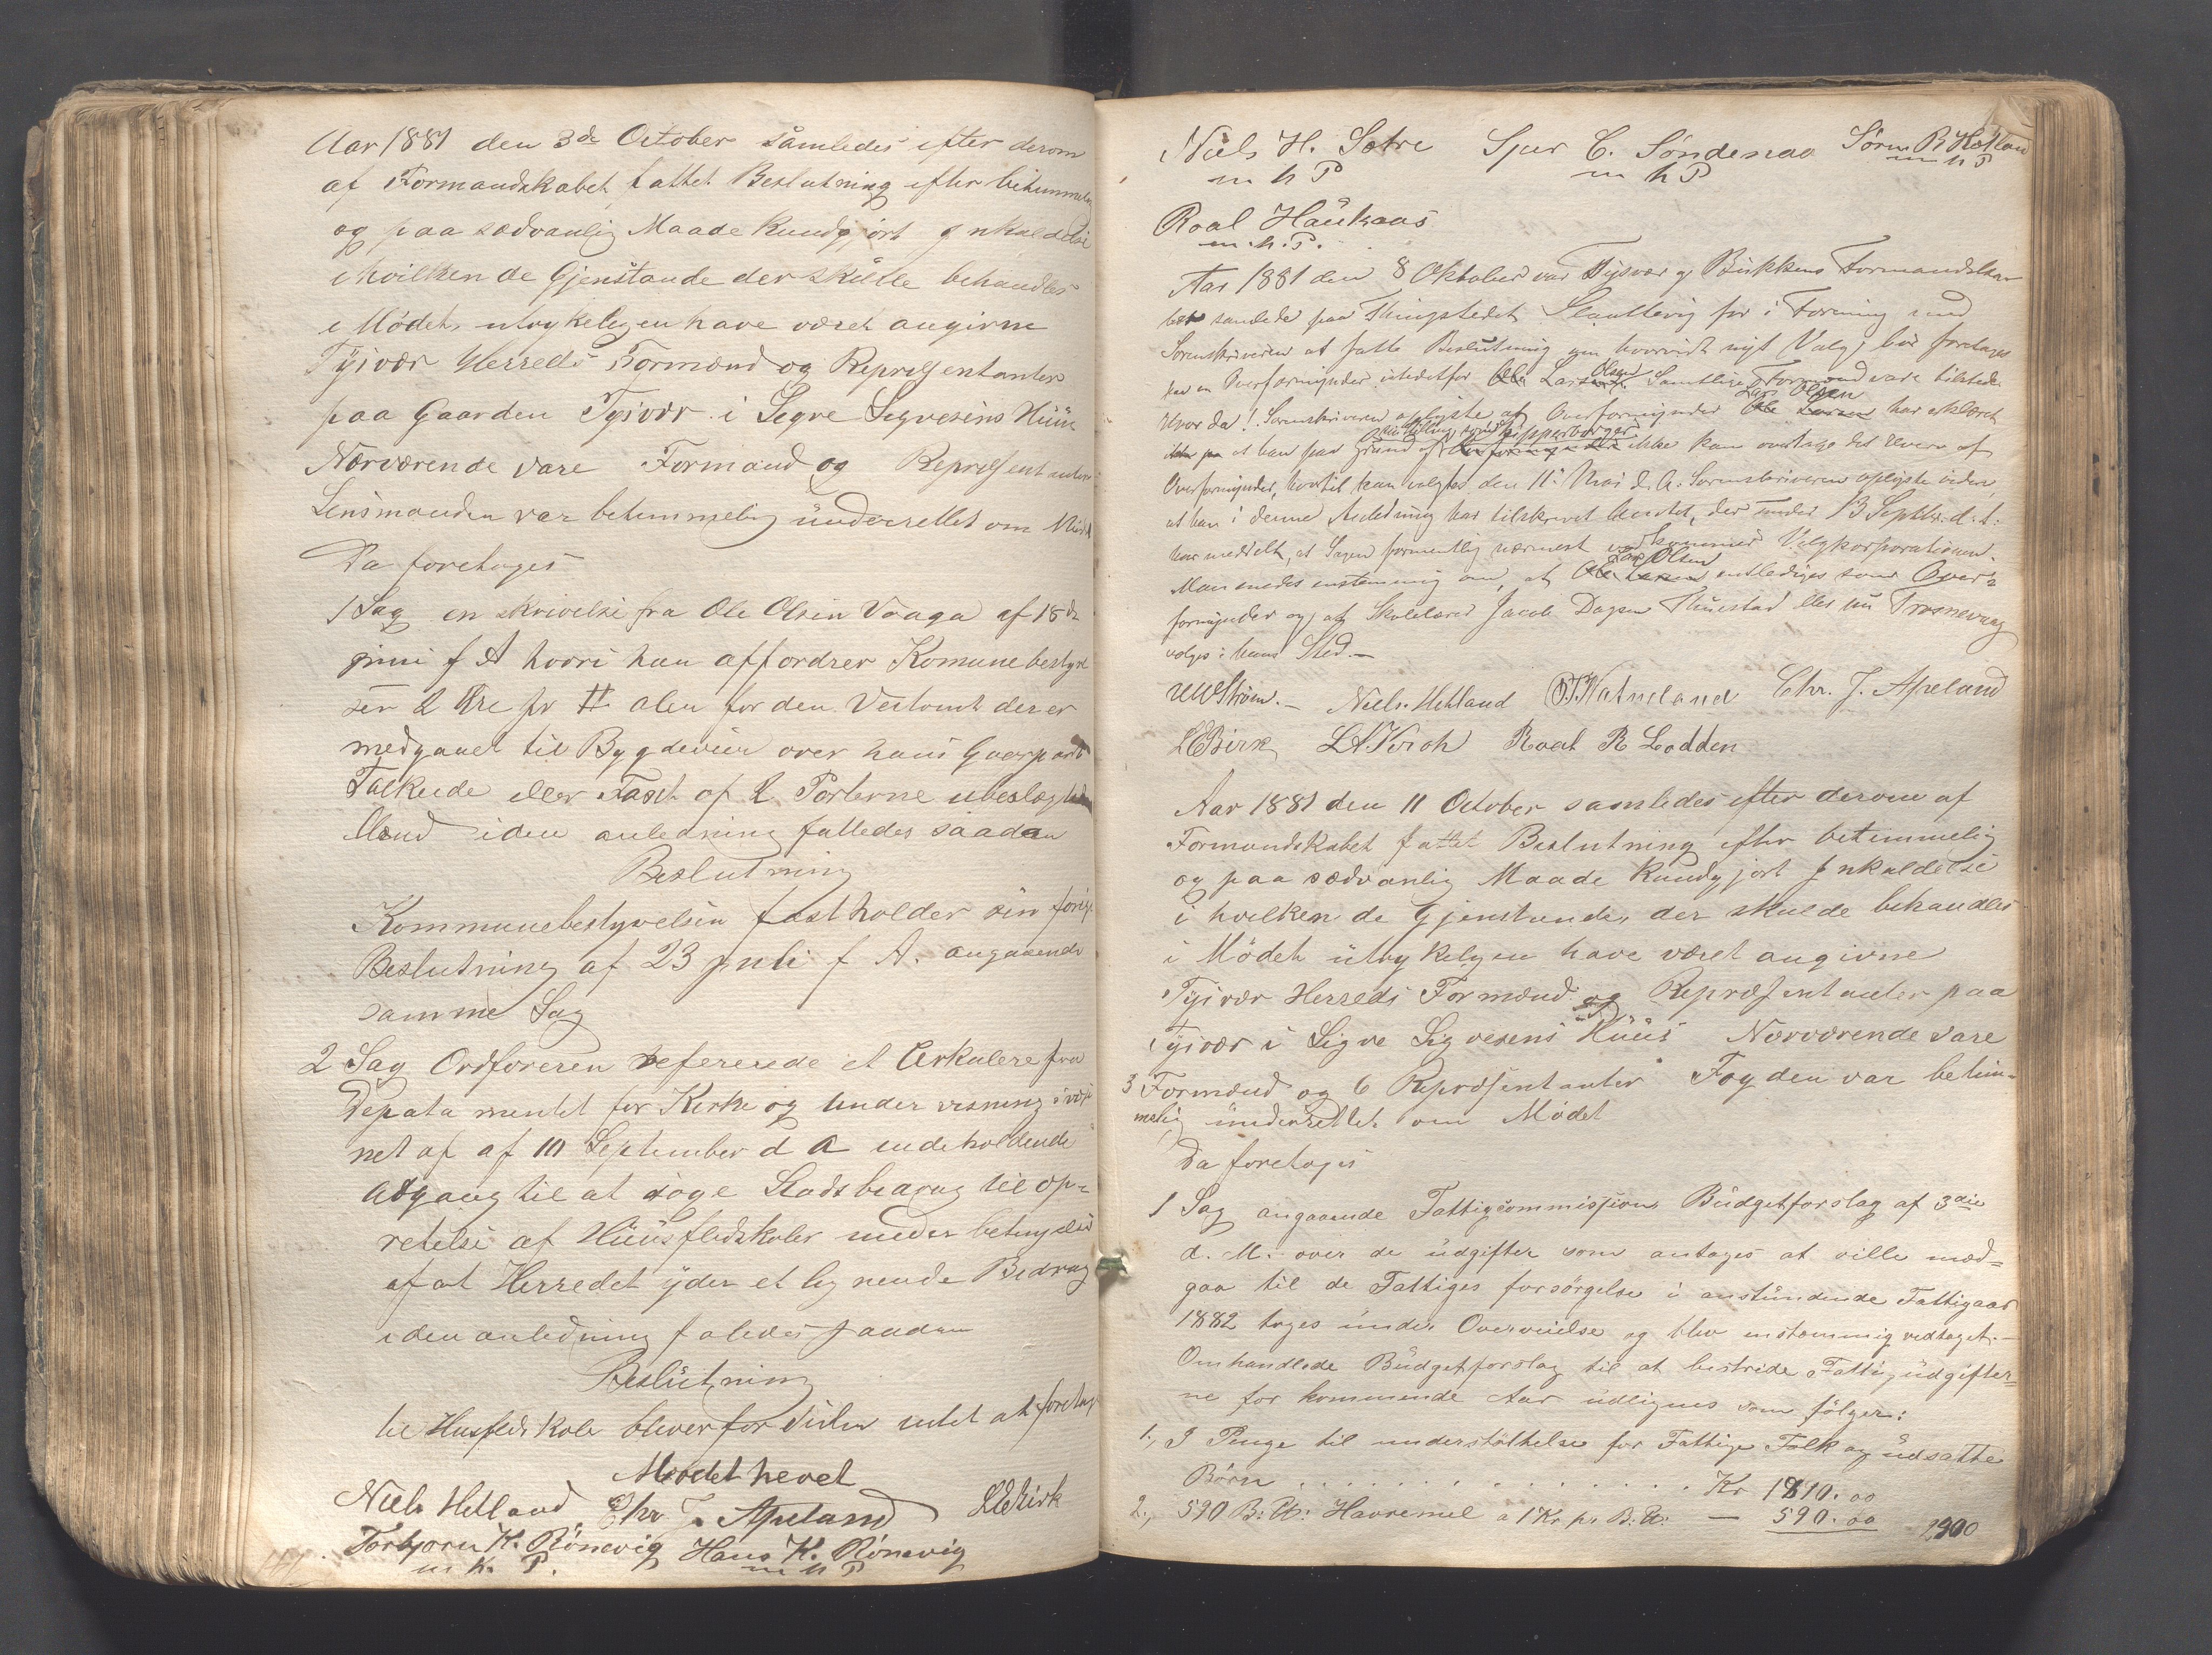 Aar 1881 den 3de October samledes efter derom
af Formandskabet fattet Beslutning efter betimmelig
og paa sædvanlig Maade Kundgjort Inkaldelse
i hvilken de Gjenstande der skulle behandles
i Mødet, utrykeligen have været angivne
Tysvær Herreds Formænd og Repræsentanter
paa Gaarden Tysvær i Segve Segvesens Huus
Nærværende vare Formænd og Repræsentanter
Lensmanden var betimmelig underrettet om Mødet
Da foretoges
1 Sag en skrivelse fra Ole Olsen Vaaga af 18de
juni f A hvori han affordrer Komunebestyrel
sen 2 Øre pr # alen for den Vertomt der er
medgaaet til Bygdevei over hans Gaarpart
Falkeide eller Taxt af 2 Parterne ubeslægtede
Mænd iden anledning fattedes saadan
Beslutning
Kommunebestyrelsen fastholder sin forige
Beslutning af 23 juli f A. angaaende
samme Sag
2 Sag Ordføreren refererede et Cirkulere fra
Depata mentet for Kirke og Under visnings væse
net af af 10 September d A indeholdende
Adgang til at søge Stadsbeaarag til op-
retelse af Huusflidskoler under betingelse
af at Herredet yder et lignende Bedrag
i den anledning faledes saadan
Beslutning
be Husflids Kole blever for tiden intet at foretage
Mødet hevet
Niels Hetland Chr J. Apeland LEBirk
Torbjorn K. Rönevig Hans K. Rönevig
m h. P. m h P
Niels H. Sætre Sjur C. Söndenaa Sören B Hetland
m h P m h P m h P
Roal Haukaas
m. h. P.
Aar 1881 den 8 Oktober var Tysvær og Bukkens Formandska-
bet samlede paa Thingstedet Slaattevig for i Forening med
Sorenskriveren at fatte Beslutning om hvorvidt nyt Valg bør foretages
paa en Overformynder istedetfor Lars Olsen. Samtlige Formænd vare tilstede.
Hvor da! Sorenskriveren oplyste at Overformynder Lars Olsen har erklæret
at han paa Grund af sin Stilling som Skipperborger ikke kan overtage det Hverv af
Overformynder, hvortil han valgtes den 11 Mai d. A. Sorenskriveren oplyste videre,
at han i denne Anledning har tilskrevet Amtet, der under 13 Septbr. d. A.
har meddelt, at Sagen formentlig nærmest vedkommer Valgkorporationen.
Man enedes enstemmig om, at Lars Olsen entlediges som Over-
formynder og at Skolelærer Jacob Dagsen Thuestad eller nu Trosnevaag
vælges i hans Sted.—
UWStrøm.— Niels Hetland O.T. Vatneland Chr. J. Apeland
LEBirk L A Vcroh Roal R Lodden
Aar 1881 den 11 October samledes efter derom af
Formandskabet fattet Beslutning efter betimmelig
og paa sædvanlig Maade Kundgjort Inkaldelse
i hvilken de Gjenstande, der skulde behandles
i Mödet utrykelgen have været angivne
Tysvær Herreds Formænd og Repræsentanter paa
Tysvær i Sigve Sigvesens Huus Nærværende vare
3 Formænd og 6 Repræsentanter Fogden var betim-
melig underrettet om Mödet
Da foretoges
1 Sag angaaende Fattigcommissions Budgetforslag af 3die
d. M. over de udgifter som antages at ville med=
gaa til de Fattiges forsörgelse i anstundende Fattigaar
1882 toges under Overveielse og blev enstemmig vedtaget.—
Omhandlede Budgetforslag til at bestride Fattigudgifter=
ne for kommende Aar udlignes som fölger:
1., I Penge til understöttelse for Fattige Folk og udsatte
Börn . . . . . . . . . . . . . Kr 1810.00
2., 590 B: ℔: Havremel a 1 Kr pr B. ℔: — 590.00 2900